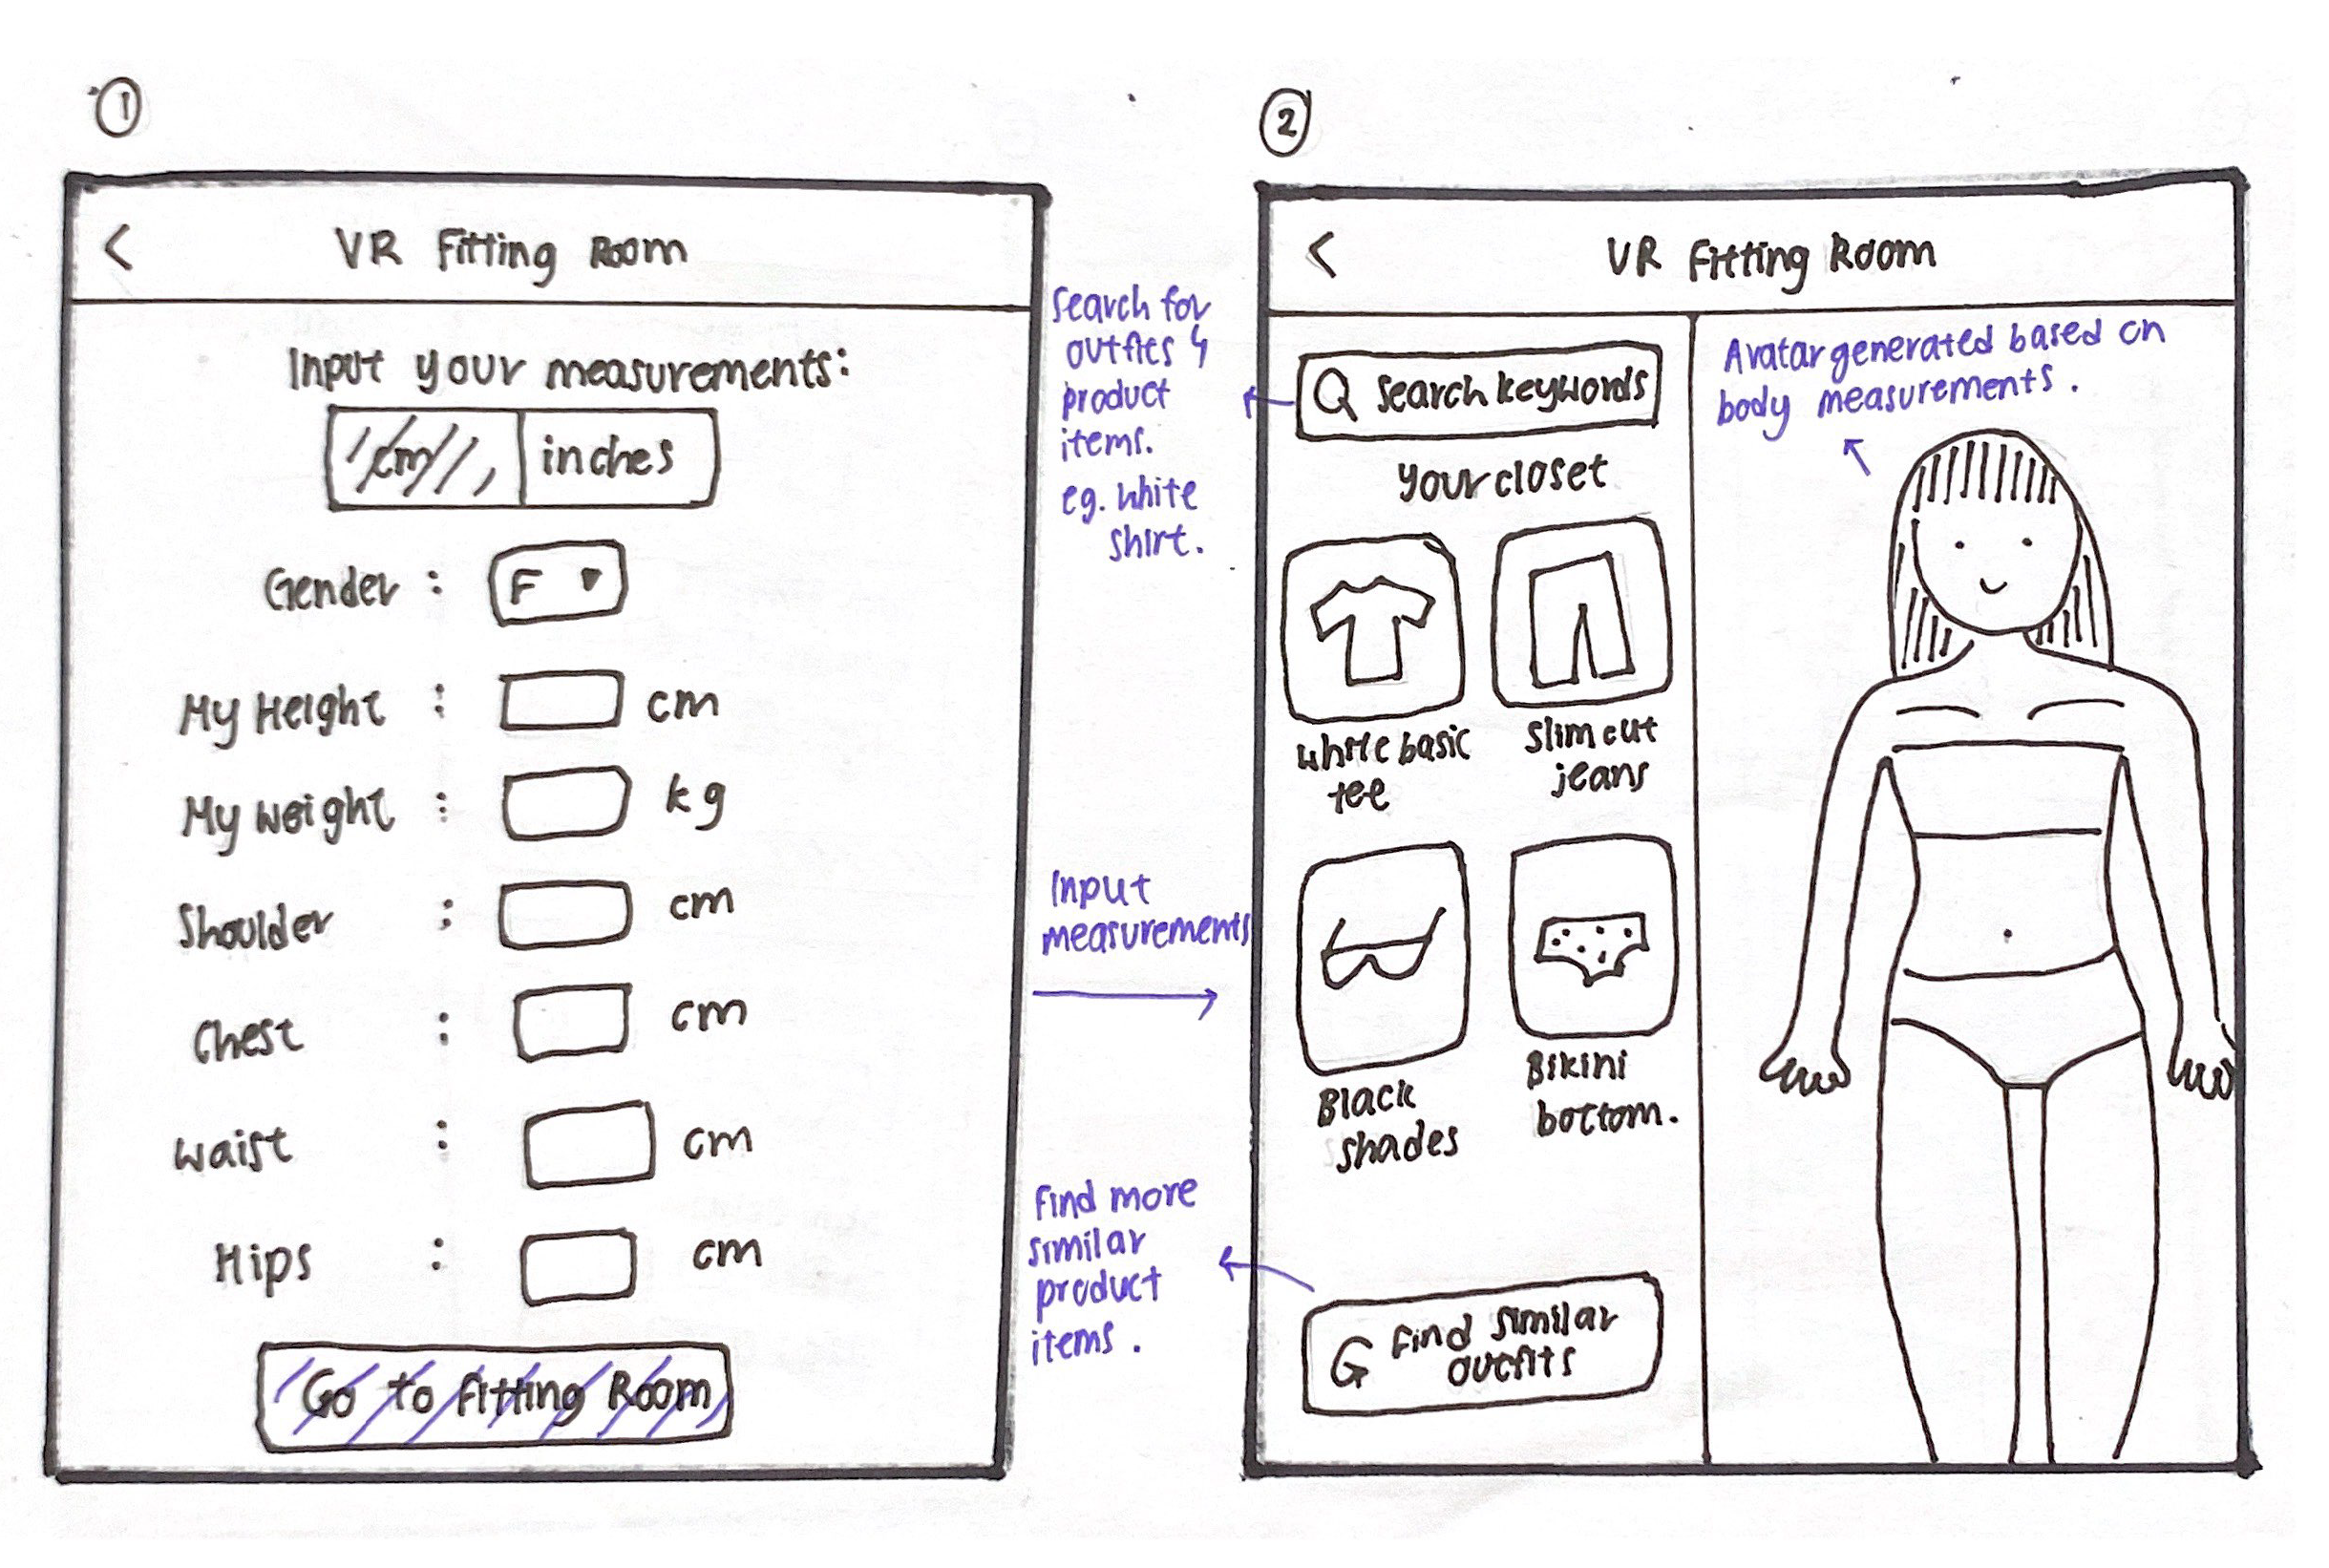 1
VR Fitting Room
Input your measurements:
cm inches
Gender : F
My Height : cm
My weight : kg
Shoulder : cm
Chest : cm
Waist : cm
Hips : cm
Go to Fitting Room
Search for
outfits &
product
items.
eg. white
shirt.
Input
measurements
Find more
similar
product
items.
2
VR Fitting Room
Search keywords
Your closet
White basic
tee
Slim cut
jeans
Black
shades
Bikini
bottom.
G Find similar
outfits
Avatar generated based on
body measurements.